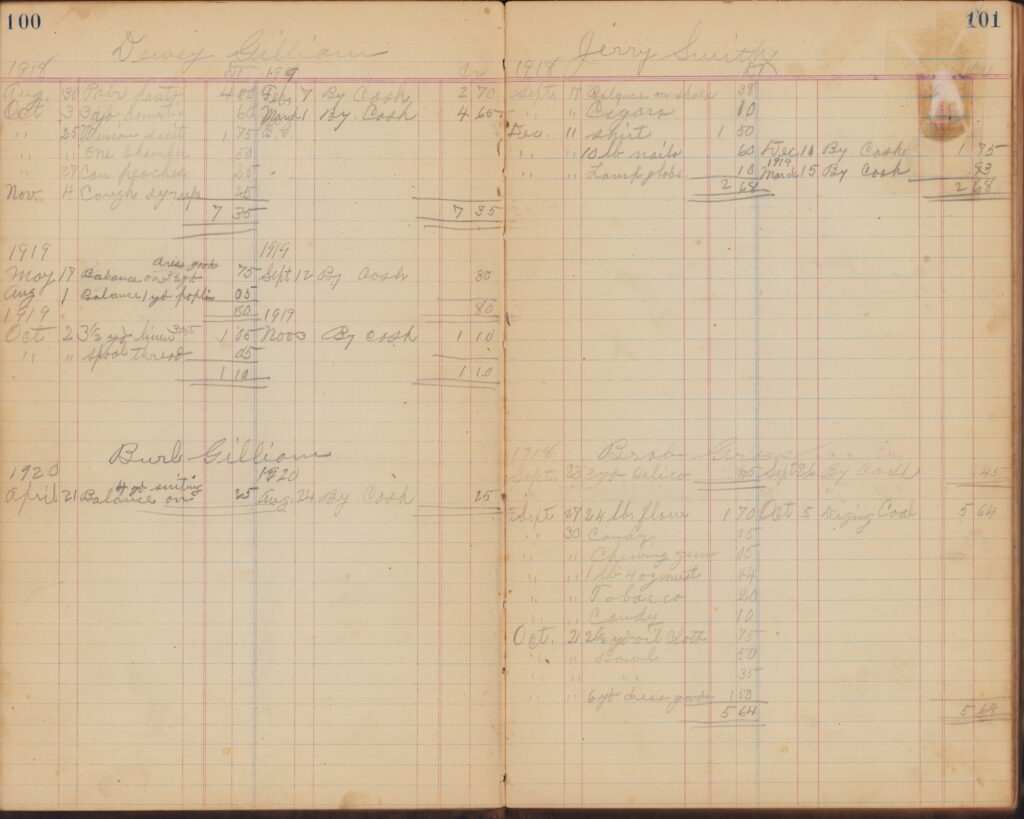 100
Dewey Gilliam
1918 Dr 1919 Cr
Aug. 30 Pair pants 4 00 Feb. 7 By Cash 2 70
Oct 3 3 yds domestic 60 March 1 By Cash 4 65
" 25 Union suit 1 75
" " One Chamber 50
" 29 Can peaches 25
Nov. 4 Cough syrup 25
7 35 7 35
1919 1919
dress goods
May 19 Balance on 75 Sept 12 By Cash 80
Aug 1 Balance 1 yd poplin 05
80 80
1919 1919
Oct 2 3 1/2 yd linen 30ct 1 05 Nov 5 By cash 1 10
" " spool thread 05
1 10 1 10
Burb Gilliam
1920 1920
4 yd suiting
April 21 Balance on 25 Aug. 24 By Cash 25
101
Jerry Smith
1918 Dr
Sept. 17 Balance on shoes 38
" " Cigars 10
Dec. 11 shirt 1 50
" " 10 lb nails 60 Dec 11 By Cash 1 75
1919
" " Lamp globe 10 March 15 By Cash 93
2 68 2 68
1918 Brad
Sept. 23 3 yd Calico 45 Sept 26 By Cash 45
Sept 27 24 lbs flour 1 70 Oct 5 Diging Coal 5 64
" 30 Candy 05
" " Chewing gum 05
" " 1 lb 4 oz meat 44
" " Tobacco 20
" " Candy 10
Oct. 2 2 1/2 yd oil cloth 75
" " Bowl 50
" " 35
" " 6 yd dress goods 1 50
5 64 5 64